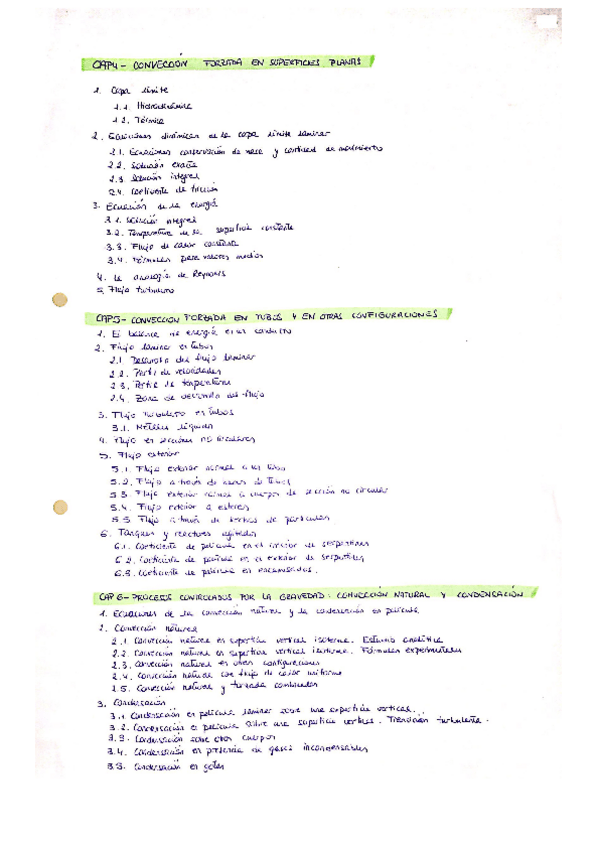 CAP4 - CONVECCIÓN FORZADA EN SUPERFICIES PLANAS
1. Capa límite
1.1. Hidrodinámica
1.2. Térmica
2. Ecuaciones dinámicas de la capa límite laminar
2.1. Ecuaciones conservación de masa y cantidad de movimiento
2.2. Solución exacta
2.3. Solución integral
2.4. Coeficiente de fricción
3. Ecuación de la energía
3.1. Solución integral
3.2. Temperatura de la superficie constante
3.3. Flujo de calor constante
3.4. Fórmulas para valores medios
4. La analogía de Reynolds
5. Flujo turbulento
CAP5 - CONVECCION FORZADA EN TUBOS Y EN OTRAS CONFIGURACIONES
1. El balance de energía en un conducto
2. Flujo laminar en tubos
2.1. Desarrollo del flujo laminar
2.2. Perfil de velocidades
2.3. Perfil de temperaturas
2.4. Zona de desarrollo del flujo
3. Flujo turbulento en tubos
3.1. Metales líquidos
4. Flujo en secciones no circulares
5. Flujo exterior
5.1. Flujo exterior normal a un tubo
5.2. Flujo a través de haces de tubos
5.3. Flujo exterior normal a cuerpos de sección no circular
5.4. Flujo exterior a esferas
5.5. Flujo a través de lechos de partículas
6. Tanques y reactores agitados
6.1. Coeficiente de película en el interior de serpentines
6.2. Coeficiente de película en el exterior de serpentines
6.3. Coeficiente de película en encamisados.
CAP 6 - PROCESOS CONTROLADOS POR LA GRAVEDAD: CONVECCIÓN NATURAL Y CONDENSACIÓN
1. Ecuaciones de la convección natural y la condensación en película
2. Convección natural
2.1. Convección natural en superficie vertical isoterma. Estudio analítico
2.2. Convección natural en superficie vertical isoterma. Fórmulas experimentales
2.3. Convección natural en otras configuraciones
2.4. Convección natural con flujo de calor uniforme
2.5. Convección natural y forzada combinadas
3. Condensación
3.1. Condensación en película laminar sobre una superficie vertical.
3.2. Condensación en película sobre una superficie vertical. Transición turbulenta.
3.3. Condensación sobre otros cuerpos
3.4. Condensación en presencia de gases incondensables
3.5. Condensación en gotas